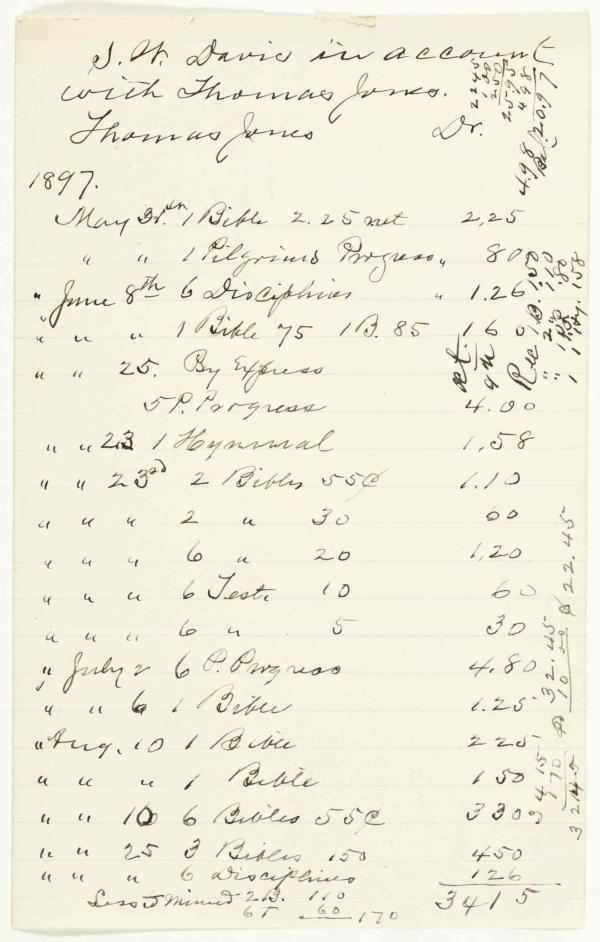 J. W. Davis in account
with Thomas Jones.
Thomas Jones Dr.
1897.
May 31st. 1 Bible 2.25 net 2,25
" " 1 Pilgrims Progress " 80
" June 8th 6 Disciplines " 1.26
" " " 1 Bible 75 1 B. 85 1 60
" " 25. By Express
5 P. Progress 4.00
" " 23 1 Hymnal 1,58
" " 23rd 2 Bibles 55¢ 1.10
" " " 2 " 30 60
" " " 6 " 20 1,20
" " " 6 Test. 10 60
" " " 6 " 5 30
" July 2 6 P. Progress 4.80
" " 6 1 Bible 1.25
" Aug. 10 1 Bible 225
" " " 1 Bible 150
" " 10 6 Bibles 55¢ 330
" " 25 3 Bibles 150 450
" " " 6 Disciplines 126
3415
2 B. 110
6 T 60 170
2245
100
250
2595
498
Bal. 20.97
4.98
Rec 1 B. 1.50
34 15
1 70
32 45
32.45
10 00
22.45